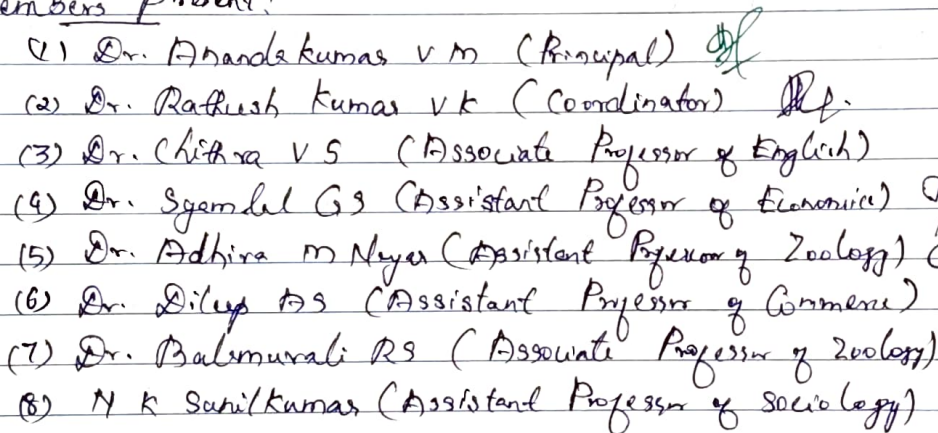 embers Present:
(1) Dr. Anandakumar V M (Principal)
(2) Dr. Ratheesh Kumar VK (Coordinator)
(3) Dr. Chithra V S (Associate Professor of English)
(4) Dr. Syamlal GS (Assistant Professor of Economics)
(5) Dr. Adhira M Nayar (Assistant Professor of Zoology)
(6) Dr. Dileep AS (Assistant Professor of Commerce)
(7) Dr. Balamurali RS (Associate Professor of Zoology)
(8) N K Sunilkumar (Assistant Professor of Sociology)